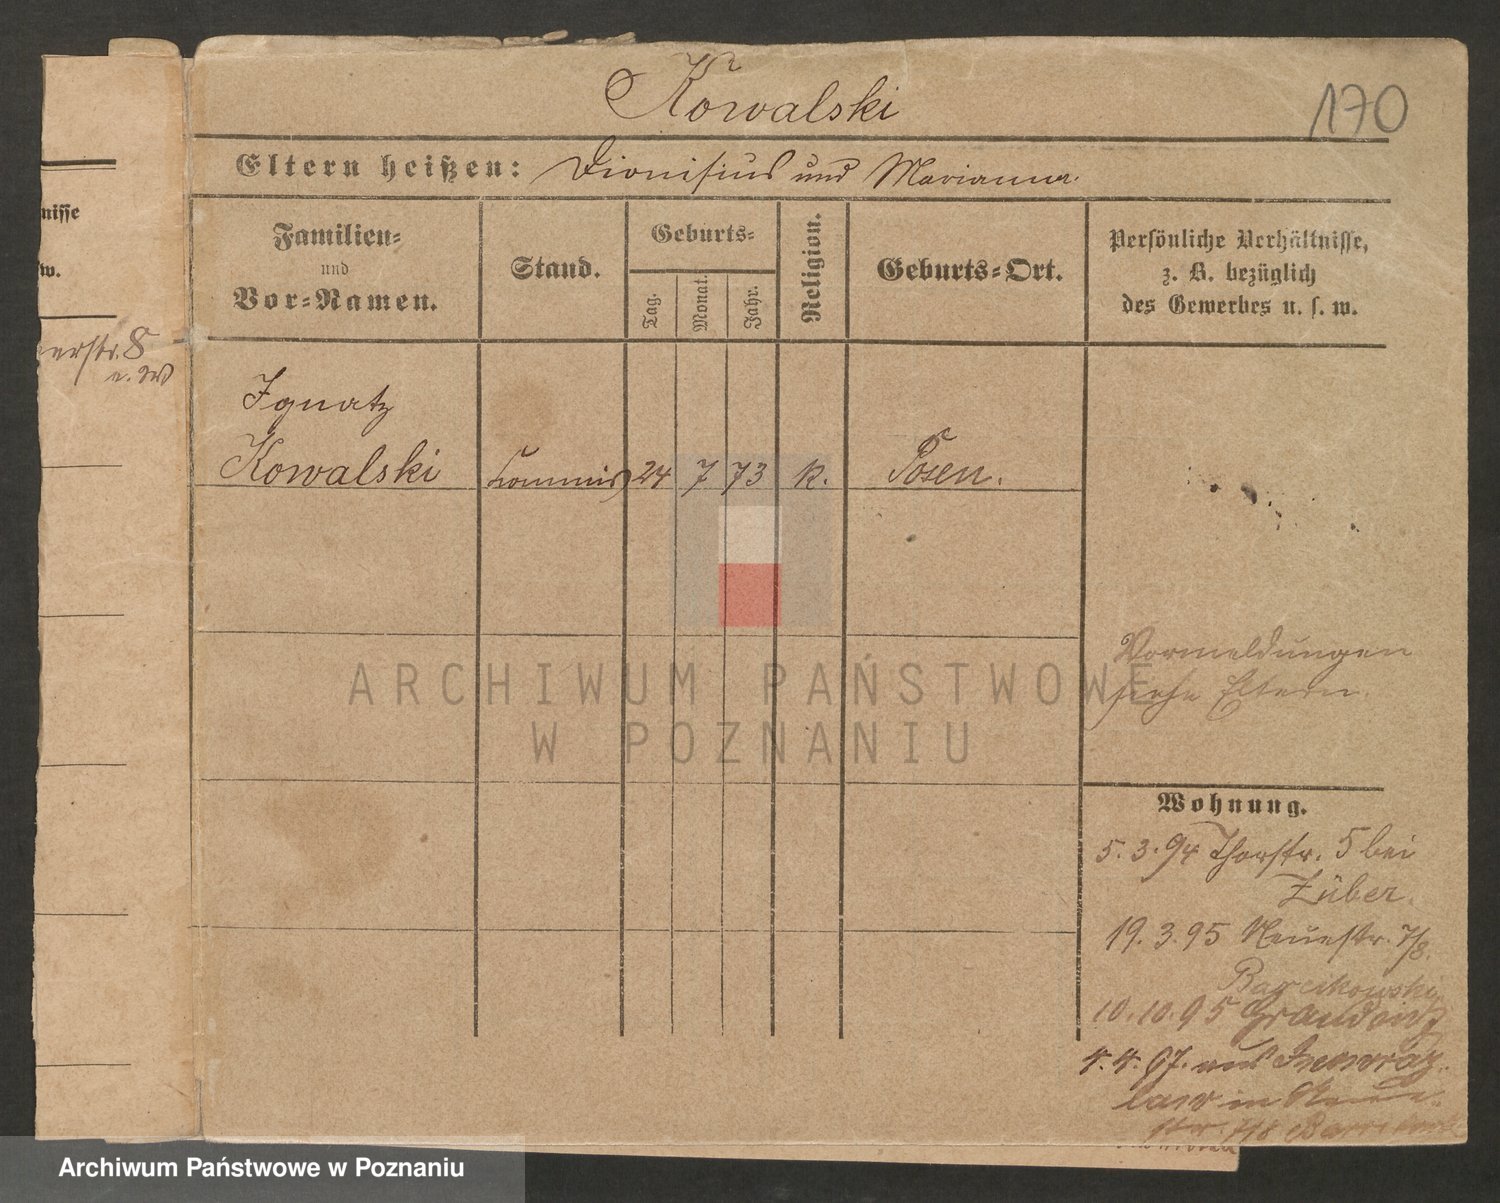 Kowalski
170
Eltern heißen: Dionisius und Marianna.
Familien=
und
Vor=Namen.
Stand.
Geburts=
Tag.
Monat.
Jahr.
Religion.
Geburts=Ort.
Persönliche Verhältnisse,
z. B. bezüglich
des Gewerbes u. s. w.
nisse
w.
erstr. 8
Ignatz
Kowalski Commis 24 7 73 K. Posen.
Vormeldungen
siehe Eltern.
Wohnung.
5. 3. 94 Thorstr. 5 bei
Züber.
19. 3. 95 Neuestr. 7/8.
Barcikowski
10. 10. 95 Graudenz
4. 4. 97. aus Inowraz
law in Neue
str. 7/8
ARCHIWUM PAŃSTWOWE
W POZNANIU
Archiwum Państwowe w Poznaniu